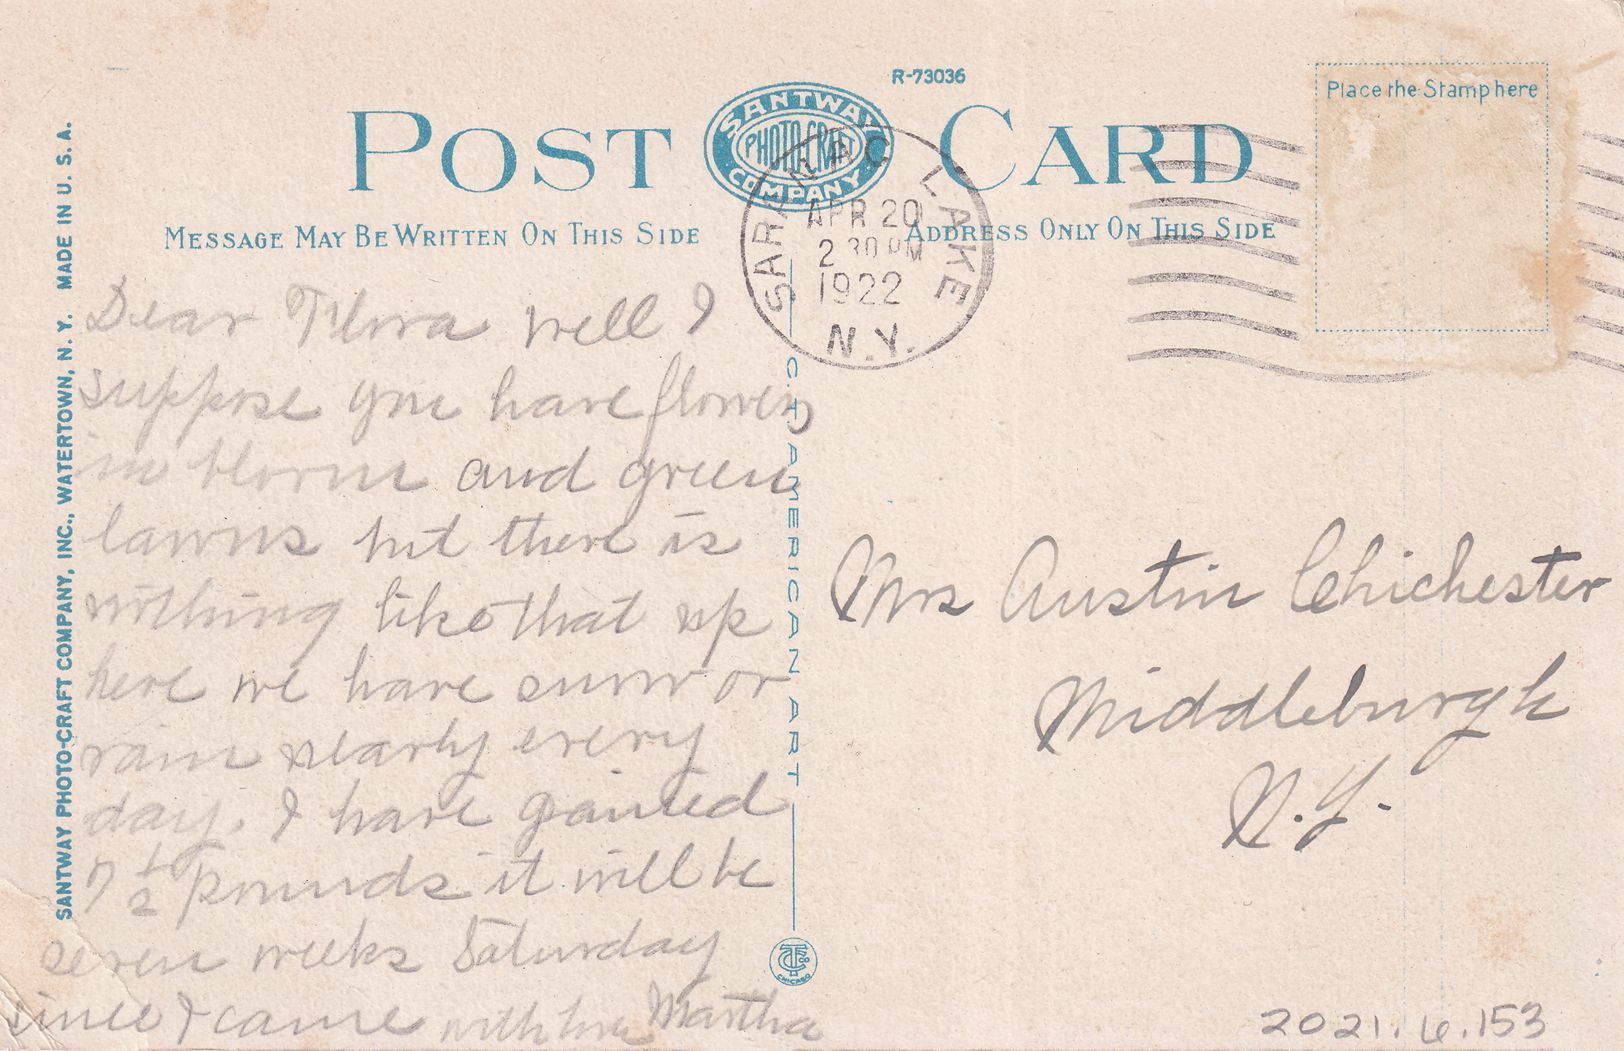 R-73036
POST CARD
SANTWAY
PHOTO-CRAFT
COMPANY
Place the Stamp here
MESSAGE MAY BE WRITTEN ON THIS SIDE
ADDRESS ONLY ON THIS SIDE
SARANAC LAKE
APR 20
2 30 PM
1922
N.Y.
SANTWAY PHOTO-CRAFT COMPANY, INC., WATERTOWN, N. Y. MADE IN U. S. A.
Dear Flora well I
suppose you have flowers
in bloom and green
lawns but there is
nothing like that up
here we have snow or
rain nearly every
day. I have gained
7 1/2 pounds it will be
seven weeks Saturday
since I came with love Martha
C. T. AMERICAN ART
CT&Co
CHICAGO
Mrs Austin Chichester
Middleburgh
N.Y.
2021.6.153